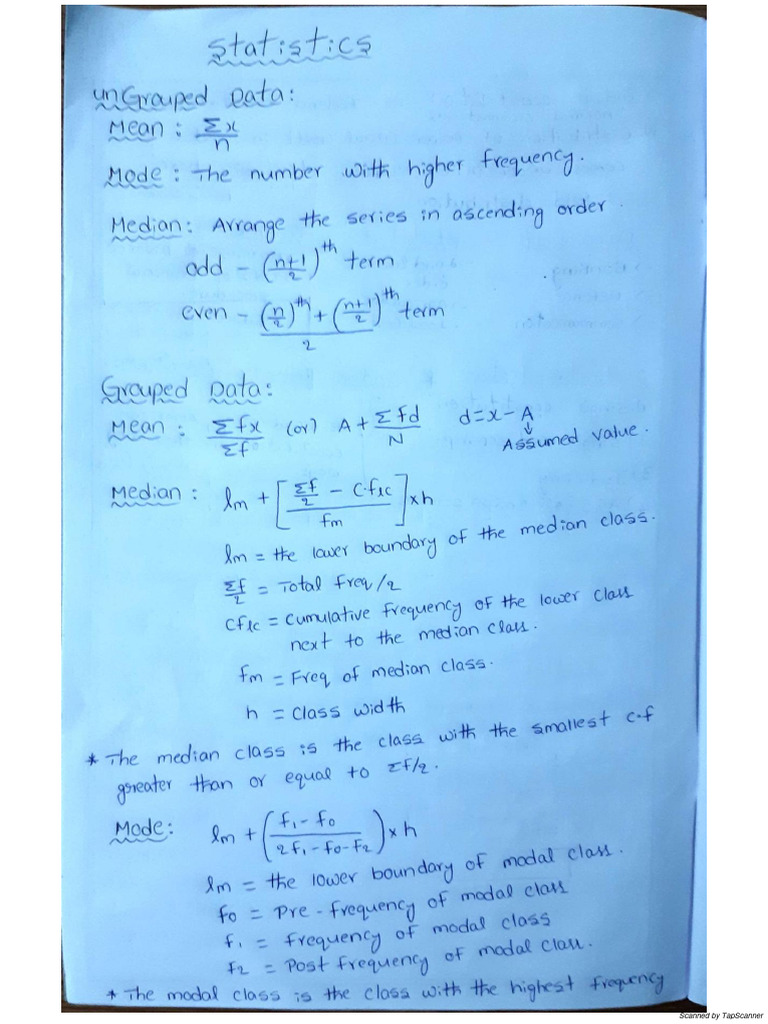 Statistics
unGrouped Data:
Mean : Σx/n
Mode : The number with higher frequency.
Median: Arrange the series in ascending order.
odd - (n+1/2)th term
even - (n/2)th + (n+1/2)th term / 2
Grouped Data:
Mean : Σfx/Σf (or) A + Σfd/N d = x - A
↓
Assumed value.
Median : lm + [Σf/2 - C.flc / fm] × h
lm = the lower boundary of the median class.
Σf/2 = Total freq/2
Cflc = Cumulative frequency of the lower class
next to the median class.
fm = Freq of median class.
h = Class width
* The median class is the class with the smallest c.f
greater than or equal to Σf/2.
Mode: lm + (f1 - f0 / 2f1 - f0 - f2) × h
lm = the lower boundary of modal class.
f0 = Pre-frequency of modal class
f1 = frequency of modal class
f2 = Post frequency of modal class.
* The modal class is the class with the highest frequency
Scanned by TapScanner